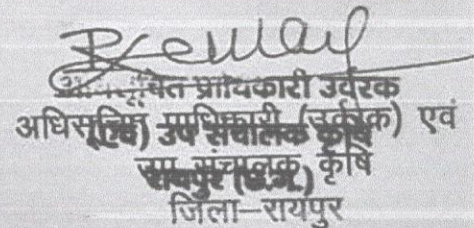 प्राधिकारी उर्वरक
अधिसूचित प्राधिकारी (उर्वरक) एवं
(एवं) उप संचालक कृषि
उप संचालक कृषि
रायपुर (छ.ग.)
जिला-रायपुर